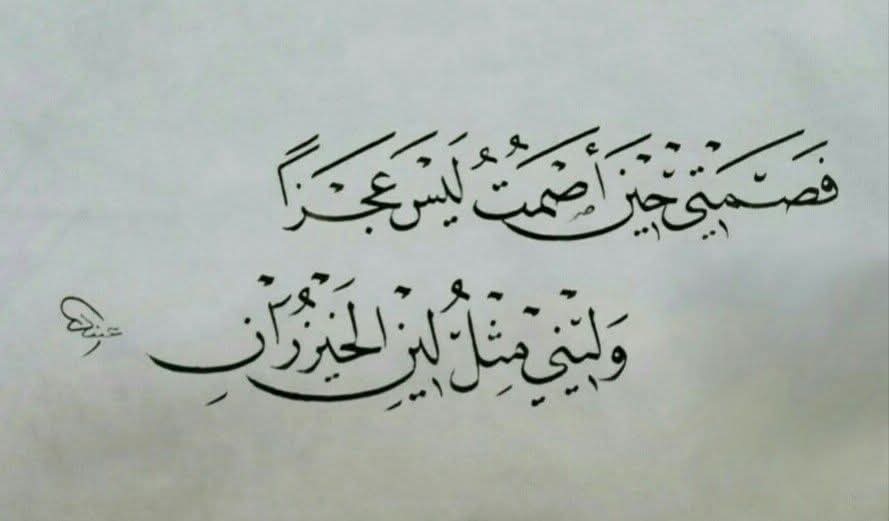 فَصَمْتِي حِيْنَ أَصْمُتُ لَيْسَ عَجْزًا
وَلِيْنِيْ مِثْلُ لِيْنِ الخَيْزُرَانِ